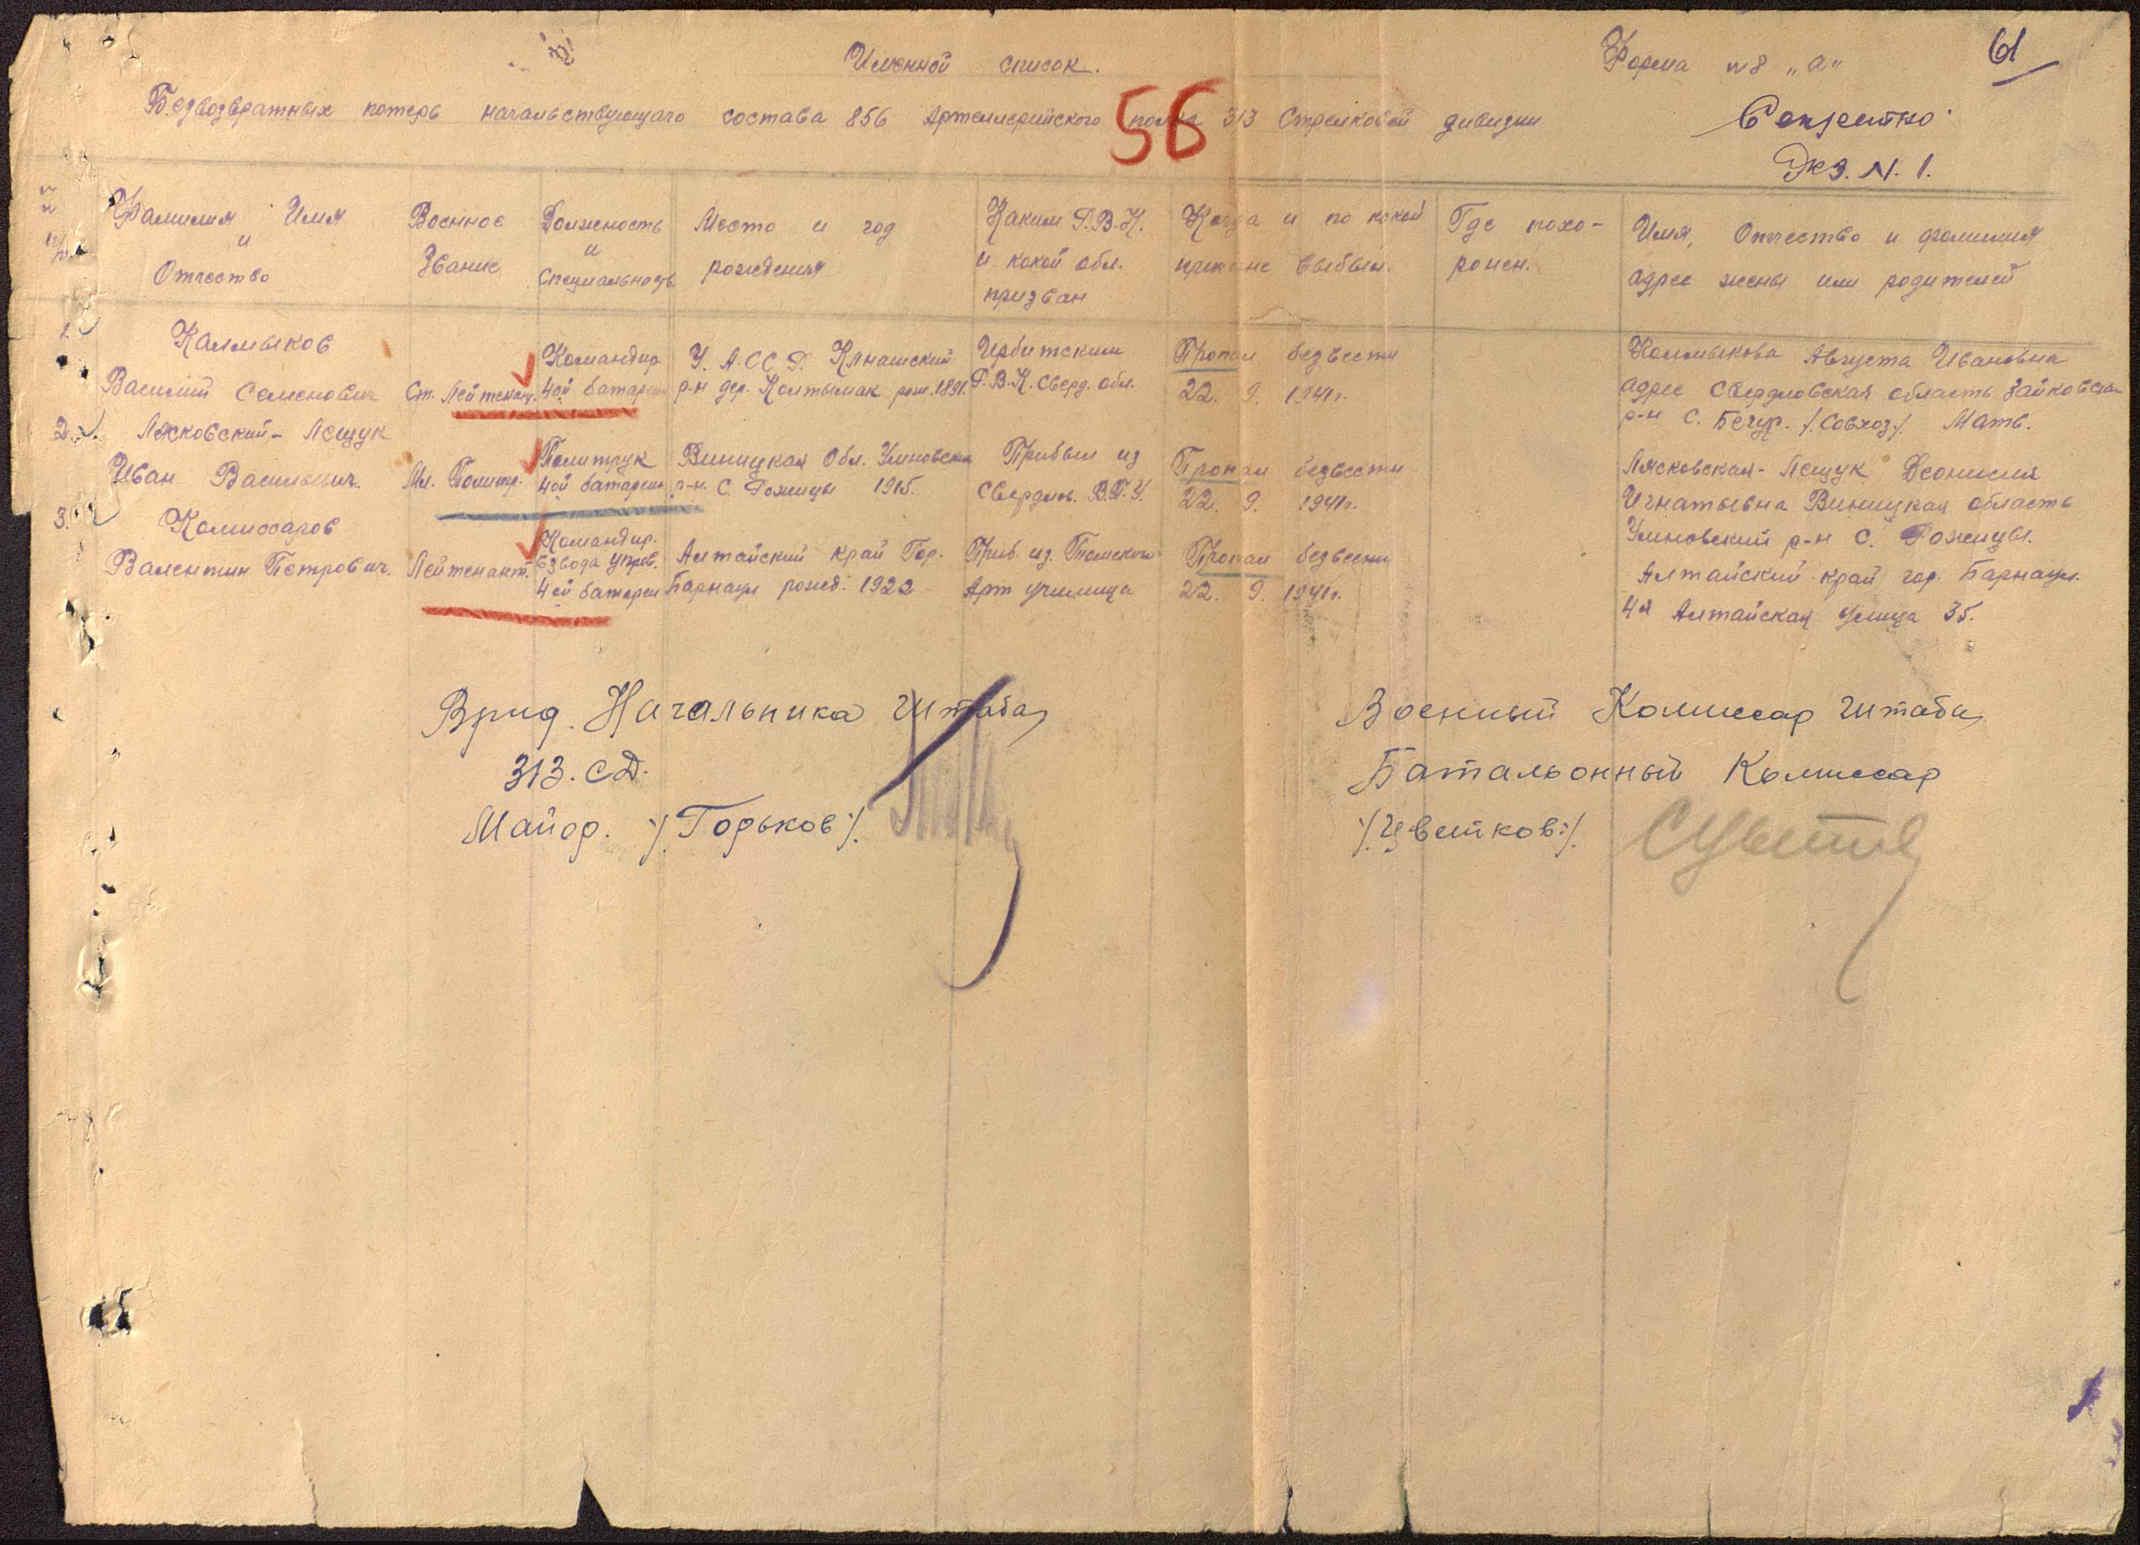 Именной список.
Форма №8 „а"
61
Безвозвратных потерь начальствующаго состава 856 Артеллерийского полка 313 Стрелковой дивизии
56
Секретно
Экз. N. 1.
Фамилия Имя
и
Отчество
Военное
Звание
Должность
и
Специальность
Место и год
рождения
Каким Р.В.К.
и какой обл.
призван
Когда и по какой
причине выбыл.
Где похо-
ронен.
Имя, Отчество и фамилия
адрес жены или родителей
1.
Калмыков
Василий Семенович
Ст. Лейтенант.
Командир
4ой батареи
У. А. С С Р.
р-н дер. Колтымак рож. 1891.
Ирбитским
Р.В.К. Сверд. обл.
Пропал безвести
22. 9. 1941г.
Калмыкова Августа Ивановна
адрес Свердловская область Зайковский
р-н С. /Совхоз/. Мать.
2.
Лясковский-Лещук
Иван Васильевич.
Мл. Политр.
Политрук
4ой батареи
Виницкая Обл. Улановский
р-н. С. Рожицы 1915.
Прибыл из
Свердлов. В.П.У.
Пропал безвести
22. 9. 1941г.
Лясковская-Лещук
Игнатьевна Виницкая область
Улановский р-н С. Рожицы.
3.
Комиссаров
Валентин Петрович.
Лейтенант.
Командир.
взвода управ.
4ой батареи
Алтайский край Гор.
Барнаул рожд. 1922
Приб. из. Томского
Арт училища
Пропал безвести
22. 9. 1941г.
Алтайский край гор. Барнаул.
4я Алтайская улица 35.
Врид. Начальника Штаба
313. СД.
Майор. /Горьков/.
Военный Комиссар Штаба
Батальонный Комиссар
/Цветков/.